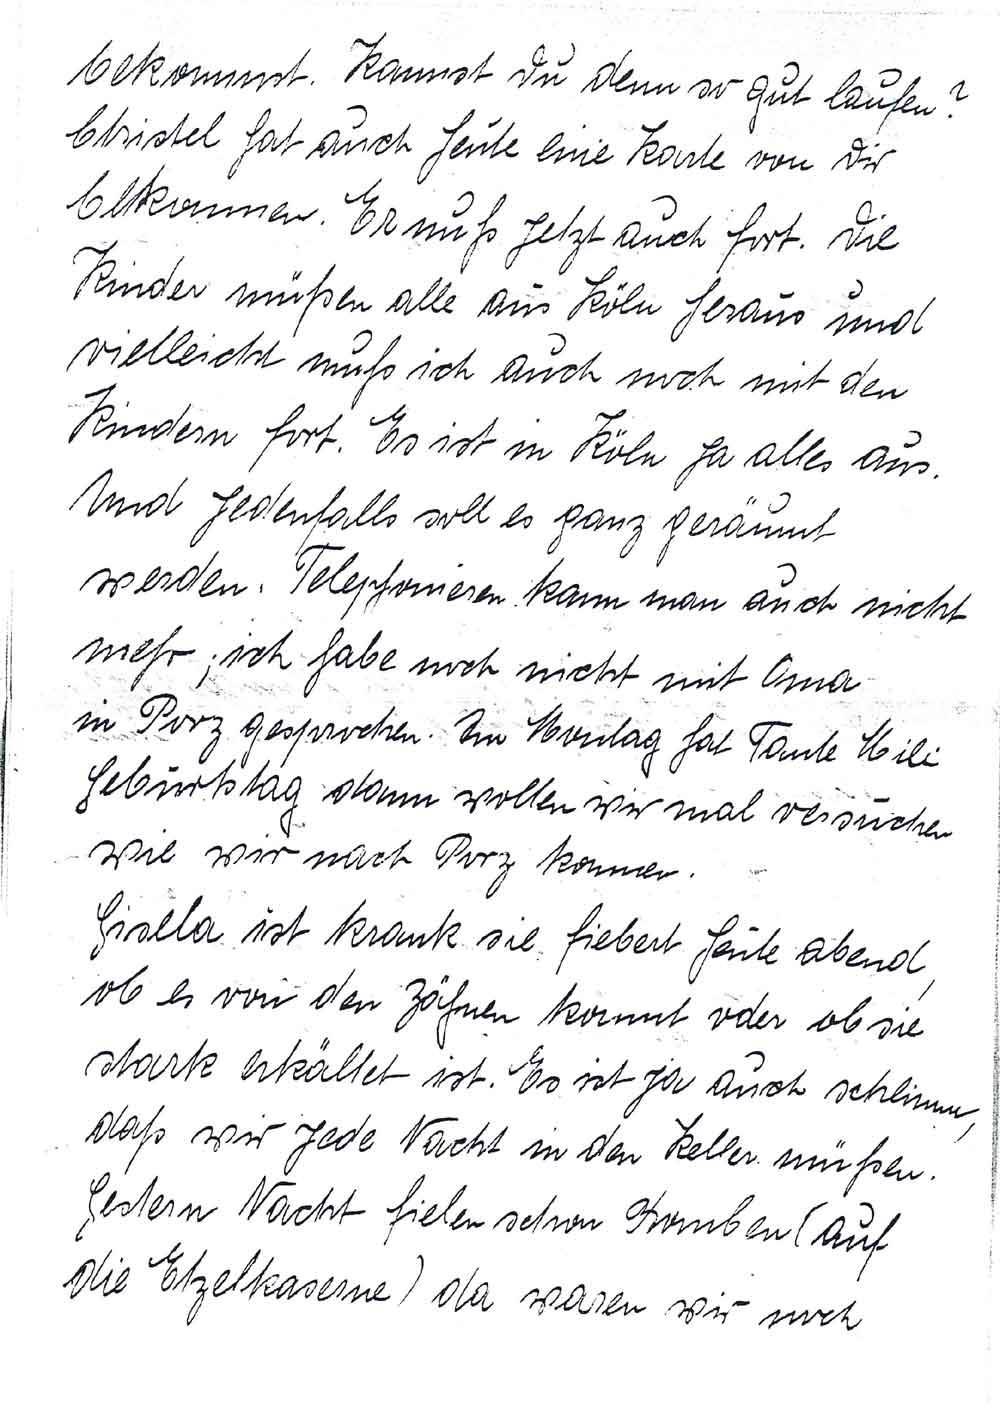 bekommst. Kannst Du denn so gut laufen?
Christel hat auch heute eine Karte von Dir
bekommen. Er muß jetzt auch fort. Die
Kinder müßen alle aus Köln heraus und
vielleicht muß ich auch noch mit den
Kindern fort. Es ist in Köln ja alles aus.
Und jedenfalls soll es ganz geräumt
werden. Telephonieren kann man auch nicht
mehr, ich habe noch nicht mit Oma
in Porz gesprochen. Am Montag hat Tante Mili
Geburtstag dann wollen wir mal versuchen
wie wir nach Porz kommen.
Gisela ist krank sie fiebert heute abend,
ob es von den Zähnen kommt oder ob sie
stark erkältet ist. Es ist ja auch schlimm,
daß wir jede Nacht in den Keller müßen.
Gestern Nacht fielen schon Bomben (auf
die Etzelkaserne) da waren wir noch